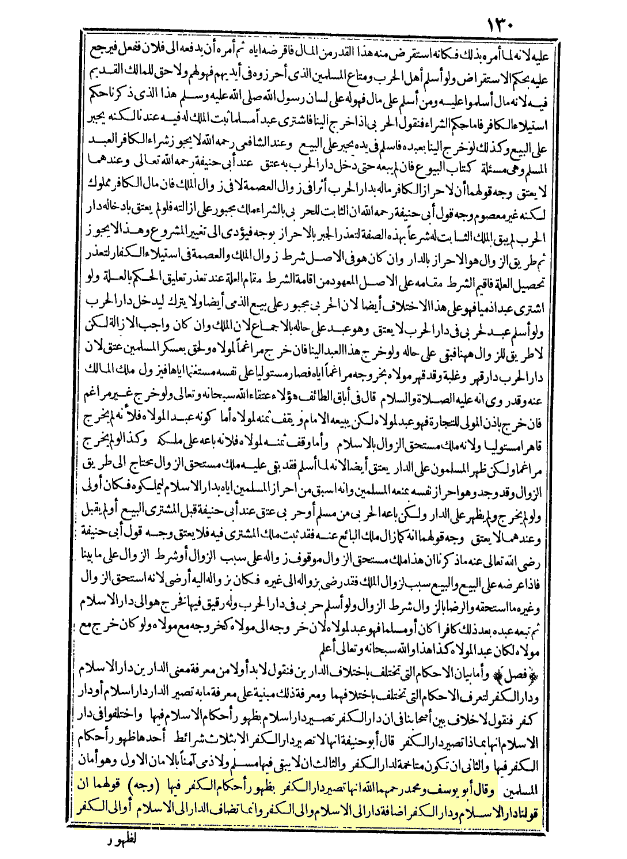 ١٣٠
عليه لانه لما أمره بذلك فكانه استقرض منه هذا القدر من المال فاقرضه اياه ثم أمره أن يدفعه الى فلان ففعل فيرجع
عليه بحكم الاستقراض ولو أسلم أهل الحرب ومتاع المسلمين الذى أحرزوه فى أيديهم فهو لهم ولا حق للمالك القديم
فيه لانه مال أسلموا عليه ومن أسلم على مال فهو له على لسان رسول الله صلى الله عليه وسلم هذا الذى ذكرنا حكم
استيلاء الكافر فاما حكم الشراء فنقول الحربى اذا خرج الينا فاشترى عبدا مسلما ثبت الملك له فيه عندنا لكنه يجبر
على البيع وكذلك لو خرج الينا بعبده فاسلم فى يده يجبر على البيع وعند الشافعى رحمه الله لا يجوز شراء الكافر العبد
المسلم وهى مسئلة كتاب البيوع فان لم يبعه حتى دخل دار الحرب به عتق عند أبى حنيفة رحمه الله تعالى وعندهما
لا يعتق وجه قولهما أن لاحراز الكافر ماله بدار الحرب أثرا فى زوال العصمة لا فى زوال الملك فان مال الكافر مملوك
لكنه غير معصوم وجه قول أبى حنيفة رحمه الله ان الثابت للحربى بالشراء ملك مجبور على ازالته فلو لم يعتق بادخاله دار
الحرب لم يبق الملك الثابت له شرعا بهذه الصفة لتعذر الجبر بالاحراز بوجه فيؤدى الى تغيير المشروع وهذا لا يجوز
ثم طريق الزوال هو الاحراز بالدار وان كان هو فى الاصل شرط زوال الملك والعصمة فى استيلاء الكفار لتعذر
تحصيل العلة فاقيم الشرط مقامه على الاصل المعهود من اقامة الشرط مقام العلة عند تعذر تعليق الحكم بالعلة ولو
اشترى عبدا ذميا فهو على هذا الاختلاف أيضا لان الحربى مجبور على بيع الذمى أيضا ولا يترك ليدخل دار الحرب
ولو أسلم عبد لحربى فى دار الحرب لا يعتق وهو عبد على حاله بالاجماع لان الملك وان كان واجب الازالة لكن
لا طريق للزوال ههنا فبقى على حاله ولو خرج هذا العبد الينا فان خرج مراغما لمولاه ولحق بعسكر المسلمين عتق لان
دار الحرب دار قهر وغلبة وقد قهر مولاه بخروجه مراغما اياه فصار مستوليا على نفسه مستغنما اياها فيزول ملك المالك
عنه وقد روى انه عليه الصلاة والسلام قال فى أباق الطائف هؤلاء عتقاء الله سبحانه وتعالى ولو خرج غير مراغم
فان خرج باذن المولى للتجارة فهو عبد لمولاه لكن يبيعه الامام ويقف ثمنه لمولاه أما كونه عبدا لمولاه فلأنه لم يخرج
قاهرا مستوليا ولانه ملك مستحق الزوال بالاسلام وأما وقف ثمنه لمولاه فلانه باعه على ملكه وكذا لو لم يخرج
مراغما ولكن ظهر المسلمون على الدار يعتق أيضا لانه لما أسلم فقد بقى عليه ملك مستحق الزوال محتاج الى طريق
الزوال وقد وجد وهو احراز نفسه بمنعة المسلمين وانه اسبق من احراز المسلمين اياه بدار الاسلام ليملكوه فكان أولى
ولو لم يخرج ولم يظهر على الدار ولكن باعه الحربى من مسلم أو حربى عتق عند أبى حنيفة قبل المشترى البيع أو لم يقبل
وعندهما لا يعتق وجه قولهما انه كما زال ملك البائع عنه فقد ثبت ملك المشترى فيه فلا يعتق وجه قول أبى حنيفة
رضى الله تعالى عنه ما ذكرنا ان هذا ملك مستحق الزوال موقوف زواله على سبب الزوال أو شرط الزوال على ما بينا
فاذا عرضه على البيع والبيع سبب لزوال الملك فقد رضى بزواله الى غيره فكان بزواله اليه أرضى لانه استحق الزوال
وغيره ما استحقه والرضا بالزوال شرط الزوال ولو أسلم حربى فى دار الحرب وله رقيق فيها فخرج هو الى دار الاسلام
ثم تبعه عبده بعد ذلك كافرا كان أو مسلما فهو عبد لمولاه لان خروجه الى مولاه كخروجه مع مولاه ولو كان خرج مع
مولاه لكان عبدا لمولاه كذا هذا والله سبحانه وتعالى أعلم
﴿فصل﴾ وأما بيان الاحكام التى تختلف باختلاف الدارين فنقول لا بد أولا من معرفة معنى الدارين دار الاسلام
ودار الكفر لتعرف الاحكام التى تختلف باختلافهما ومعرفة ذلك مبنية على معرفة ما به تصير الدار دار اسلام أو دار
كفر فنقول لا خلاف بين أصحابنا فى ان دار الكفر تصير دار اسلام بظهور أحكام الاسلام فيها واختلفوا فى دار
الاسلام انها بماذا تصير دار الكفر قال أبو حنيفة انها لا تصير دار الكفر الا بثلاث شرائط أحدها ظهور أحكام
الكفر فيها والثانى ان تكون متاخمة لدار الكفر والثالث ان لا يبقى فيها مسلم ولا ذمى آمنا بالامان الاول وهو أمان
المسلمين وقال أبو يوسف ومحمد رحمهما الله انها تصير دار الكفر بظهور أحكام الكفر فيها (وجه) قولهما ان
قولنا دار الاسلام ودار الكفر اضافة دار الى الاسلام والى الكفر وانما تضاف الدار الى الاسلام أو الى الكفر
لظهور